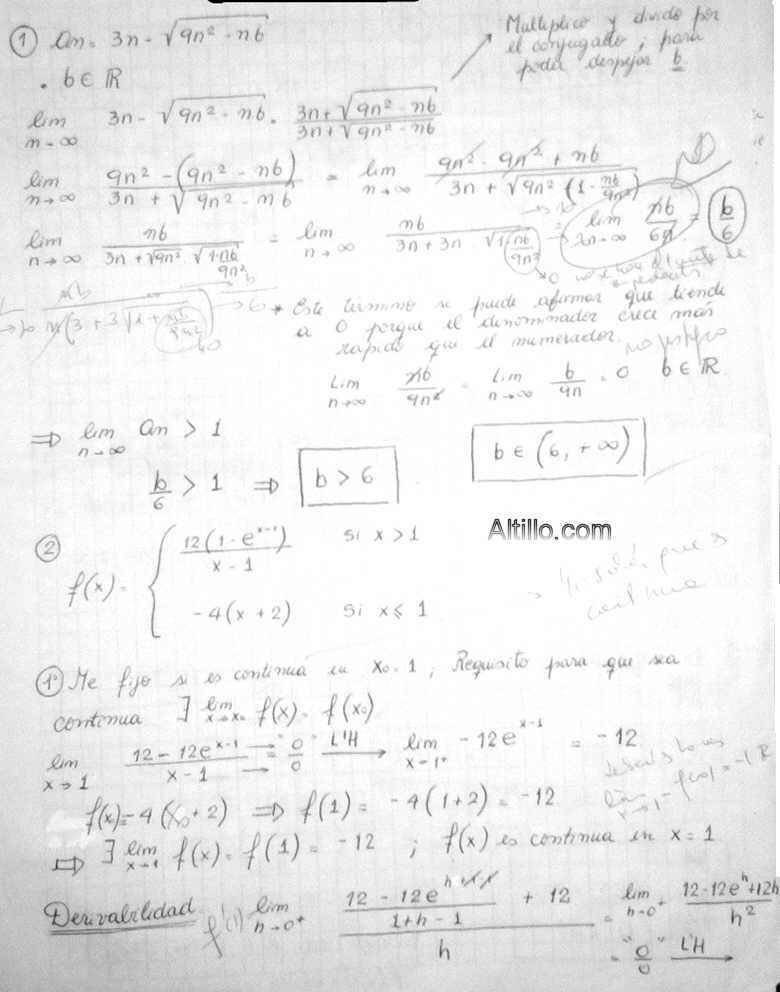 ① an = 3n - √(9n² - nb)
Multiplico y divido por
el conjugado, para
poder despejar b
. b ∈ ℝ
lim n→∞ 3n - √(9n² - nb) · (3n + √(9n² - nb))/(3n + √(9n² - nb))
lim n→∞ (9n² - (9n² - nb))/(3n + √(9n² - nb)) = lim n→∞ (9n² - 9n² + nb)/(3n + √(9n² (1 - nb/9n²)))
lim n→∞ nb/(3n + √9n² · √(1 - nb/9n²)) = lim n→∞ nb/(3n + 3n · √(1 - nb/9n²)) = lim n→∞ nb/6n = b/6
nb/(n(3 + 3√(1 + nb/9n²))) → 6
* Este término se puede afirmar que tiende
a 0 porque el denominador crece más
rápido que el numerador.
no justifico
Lim n→∞ nb/9n² = Lim n→∞ b/9n = 0 b ∈ ℝ
⇒ lim n→∞ an > 1
b/6 > 1 ⇒ b > 6
b ∈ (6, +∞)
Altillo.com
② f(x) = { 12(1 - e^(x-1))/(x - 1) si x > 1
-4(x + 2) si x ≤ 1
que es
continua
1º Me fijo si es continua en x₀ = 1, Requisito para que sea
continua ∃ lim x→x₀ f(x) = f(x₀)
lim x→1 (12 - 12e^(x-1))/(x - 1) → = "0/0" L'H → lim x→1⁺ -12e^(x-1) = -12
f(x) = -4(x₀ + 2) ⇒ f(1) = -4(1 + 2) = -12
⇒ ∃ lim x→1 f(x) = f(1) = -12 ; f(x) es continua en x = 1
Derivabilidad f'(1) lim h→0⁺ ((12 - 12e^(h+1-1))/(1 + h - 1) + 12)/h = lim h→0⁺ (12 - 12e^h + 12h)/h²
= "0/0" L'H →